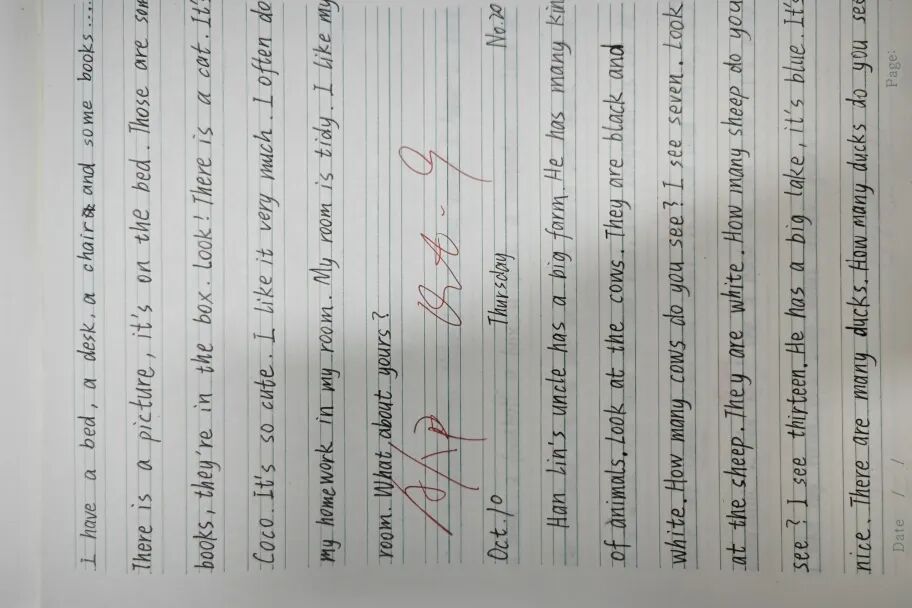 I have a bed, a desk, a chair and some books......
There is a picture, it's on the bed. Those are some
books, they're in the box. Look! There is a cat. It's
Coco. It's so cute. I like it very much. I often do
my homework in my room. My room is tidy. I like my
room. What about yours?
Oct. 10 Thursday No.20
Han Lin's uncle has a big farm. He has many kin
of animals. Look at the cows. They are black and
white. How many cows do you see? I see seven. Look
at the sheep. They are white. How many sheep do you
see? I see thirteen. He has a big lake, it's blue. It's
nice. There are many ducks. How many ducks do you see
Date / / Page: